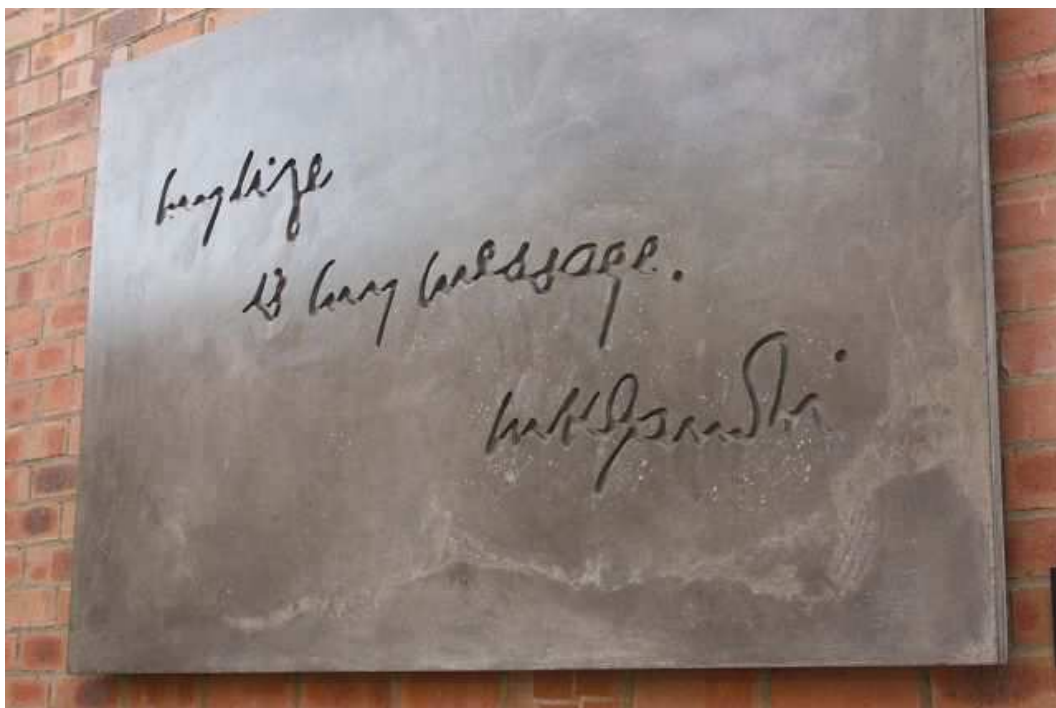 my life
is my message.
mkgandhi